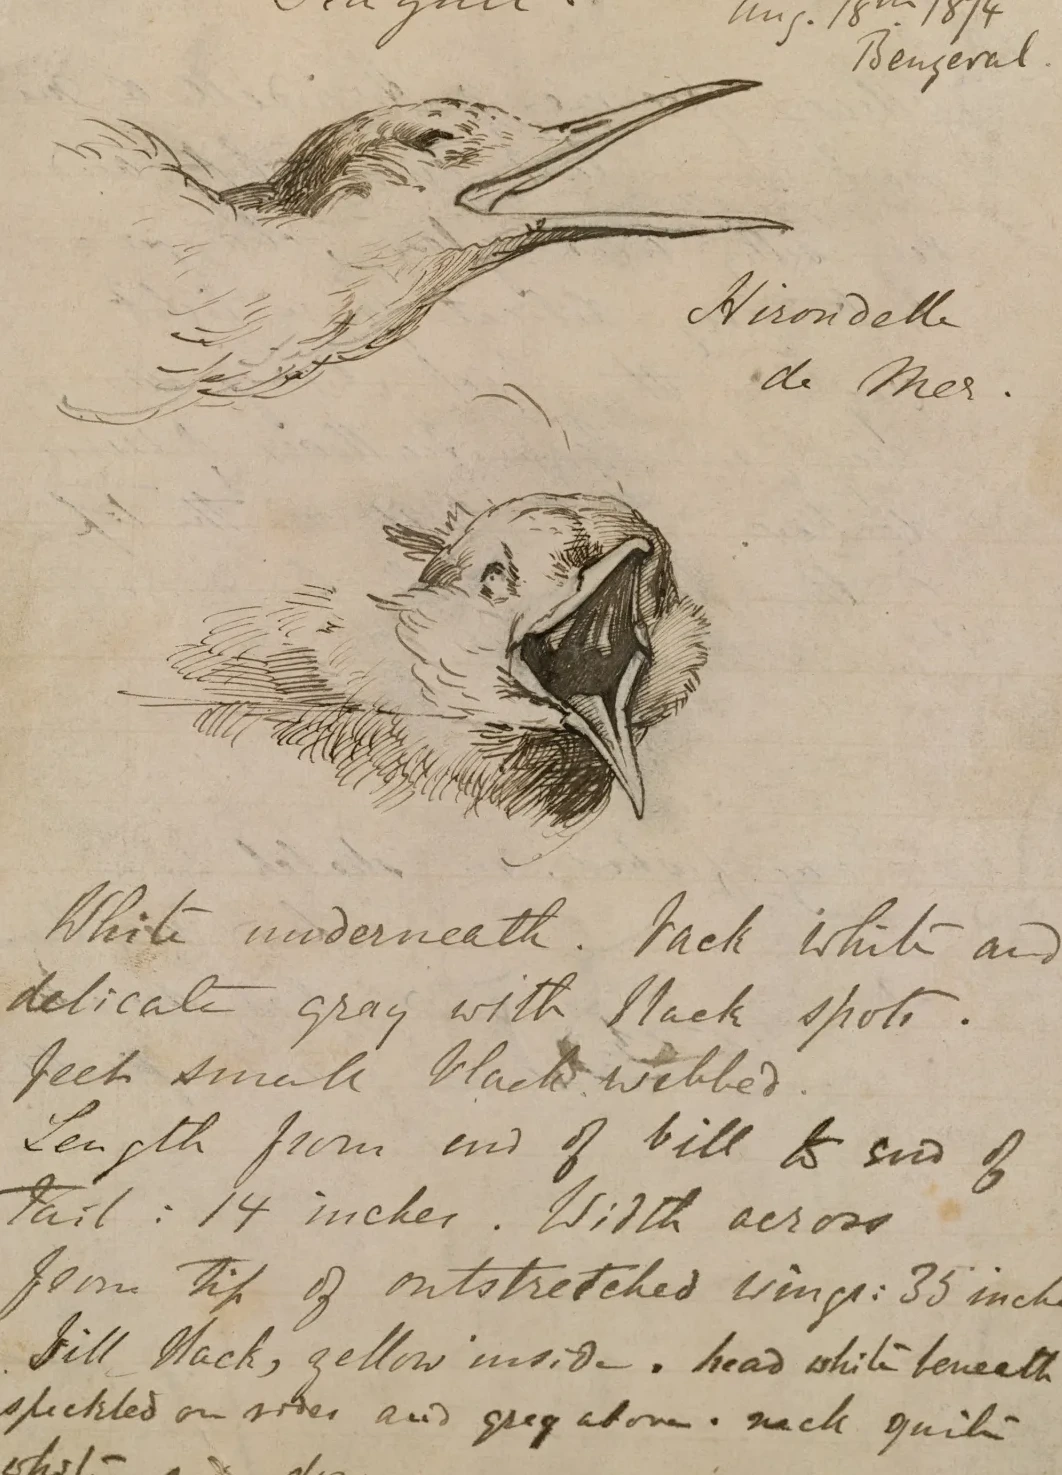 Aug. 18th. 1874
Benzeval.
Hirondelle
de Mer.
White underneath. back white and
delicate gray with black spots.
feet small black webbed.
Length from end of bill to end of
tail: 14 inches. Width across
from tip of outstretched wings: 35 inche
Bill black, yellow inside. head white beneath
speckled on sides and grey above. neck quite
white